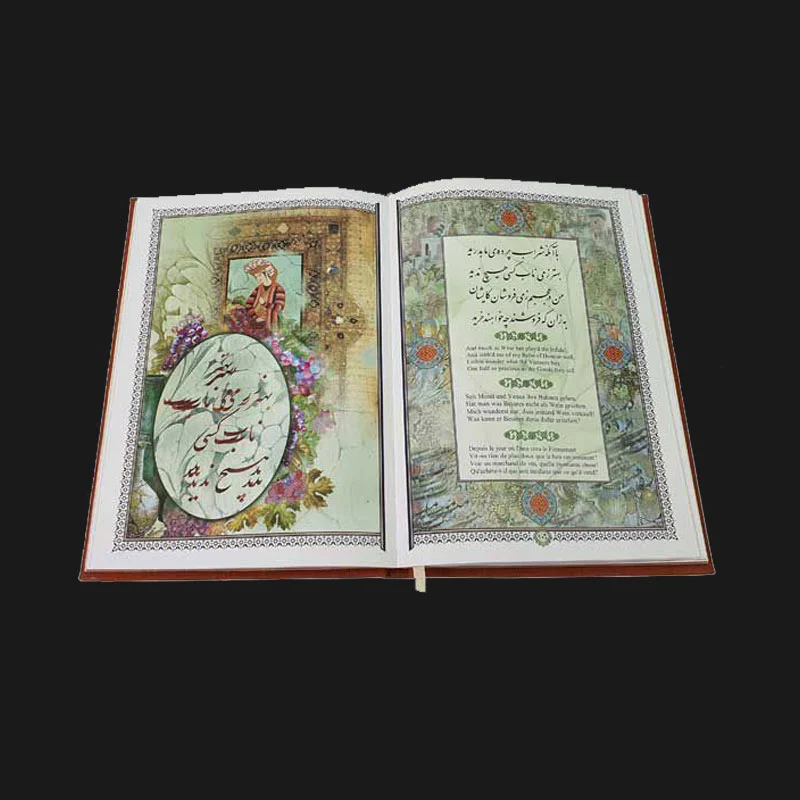 بهتر
بهتر ز می ناب
ناب کسی
هیچ ندید
با آنکه شراب پرده‌ی ما بدرید
بهتر ز می ناب کسی هیچ ندید
من در عجبم ز می فروشان کایشان
به زان که فروشند چه خواهند خرید
And much as Wine has play'd the Infidel,
And robb'd me of my Robe of Honour-well,
I often wonder what the Vintners buy,
One Half so precious as the Goods they sell
Seit Mond und Venus ihre Bahnen gehen,
Hat man was Besseres nicht als Wein gesehen.
Mich wundert nur, dass jemand Wein verkauft!
Was kann er Besseres denn dafür erstehen?
Depuis le jour où le Firmament
Vit-on rien de plus doux que le bon vin
Voir un marchand de vin, quelle étonnante chose!
Qu'achète-t-il que soit meilleur que ce qu'il vend?